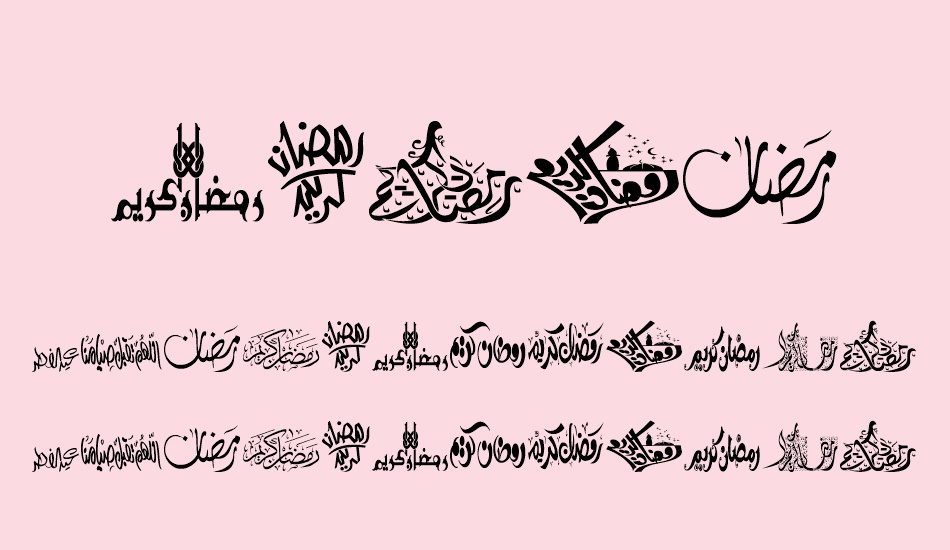 رَمَضان رمضان كريم رمضان كريم رمضان كريم رمضان كريم
رمضان كريم رمضان كريم رمضان كريم رَمَضان كريم رمضان كريم رمضان كريم رمضان كريم رَمَضَان كَريم رَمَضان اللّهُمَّ تَقَبَّل صِيَامَنَا عيد الفطر
رمضان كريم رمضان كريم رمضان كريم رَمَضان كريم رمضان كريم رمضان كريم رمضان كريم رَمَضَان كَريم رَمَضان اللّهُمَّ تَقَبَّل صِيَامَنَا عيد الفطر